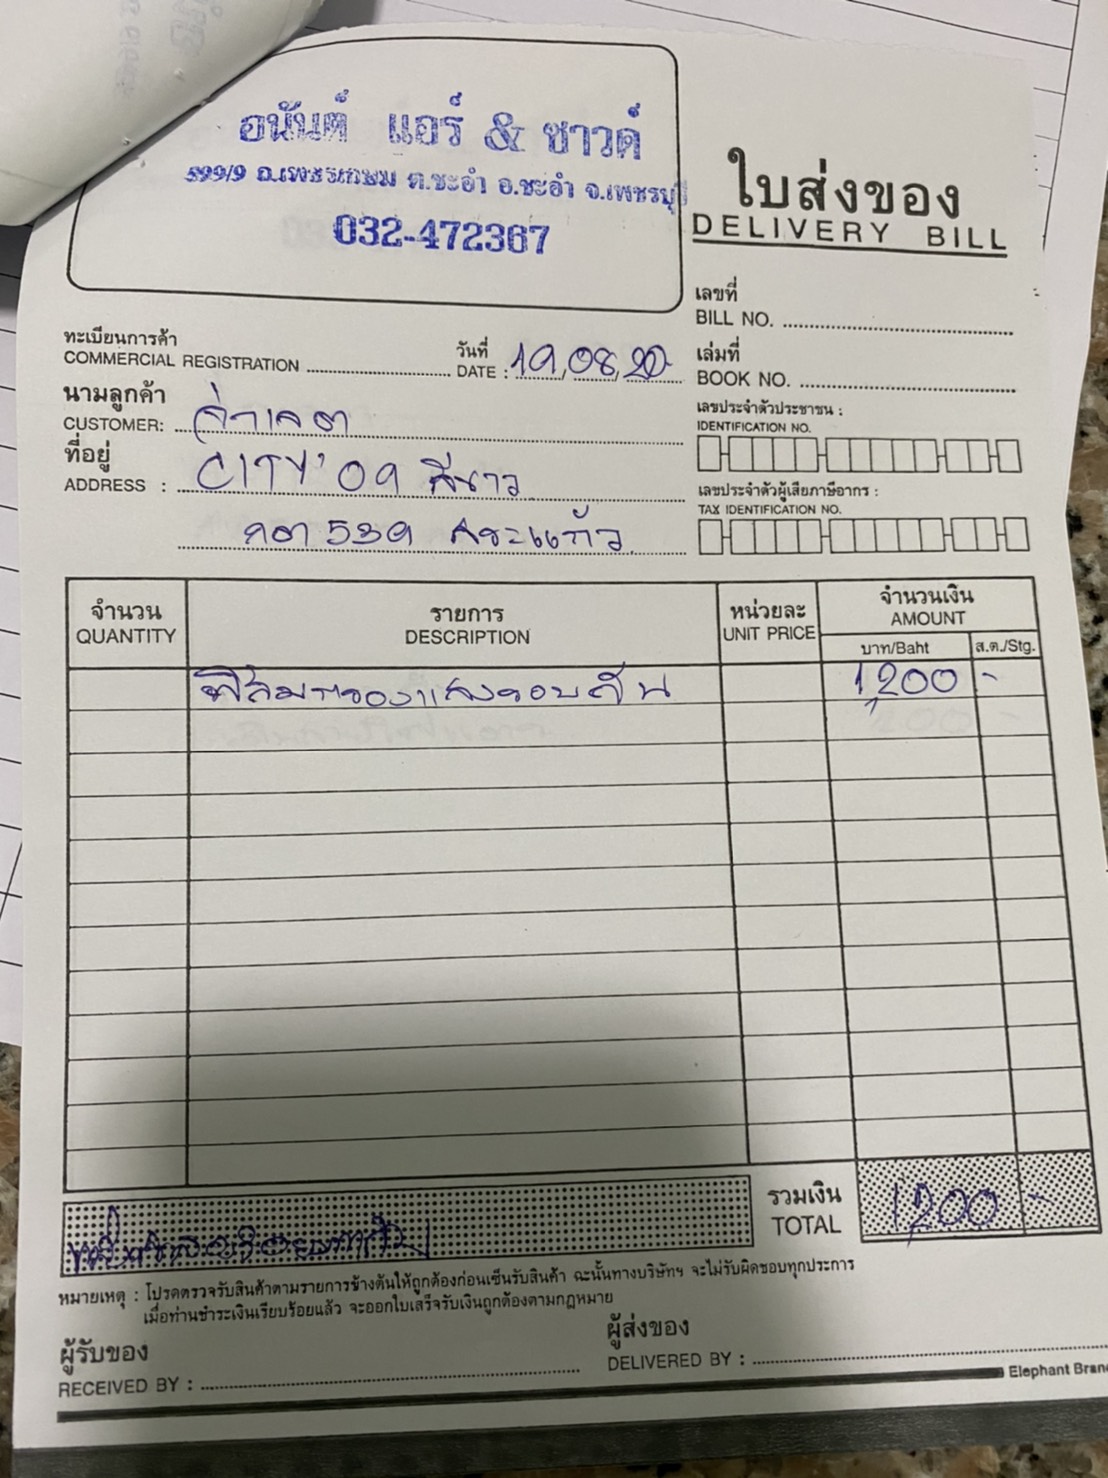 อนันต์ แอร์ & ซาวด์
599/9 ถ.เพชรเกษม ต.ชะอำ อ.ชะอำ จ.เพชรบุรี
032-472367
ใบส่งของ
DELIVERY BILL
เลขที่
BILL NO.
ทะเบียนการค้า
COMMERCIAL REGISTRATION
วันที่
DATE : 19,08,20
เล่มที่
BOOK NO.
นามลูกค้า
CUSTOMER:
เลขประจำตัวประชาชน :
IDENTIFICATION NO.
ที่อยู่
ADDRESS : CITY'09 สีขาว
เลขประจำตัวผู้เสียภาษีอากร :
TAX IDENTIFICATION NO.
กต 539 สระแก้ว
จำนวน
QUANTITY
รายการ
DESCRIPTION
หน่วยละ
UNIT PRICE
จำนวนเงิน
AMOUNT
บาท/Baht ส.ต./Stg.
ฟิล์มกรองแสงรอบคัน 1,200 -
รวมเงิน
TOTAL 1,200 -
หนึ่งพันสองร้อยบาทถ้วน
หมายเหตุ : โปรดตรวจรับสินค้าตามรายการข้างต้นให้ถูกต้องก่อนเซ็นรับสินค้า ฉะนั้นทางบริษัทฯ จะไม่รับผิดชอบทุกประการ
เมื่อท่านชำระเงินเรียบร้อยแล้ว จะออกใบเสร็จรับเงินถูกต้องตามกฎหมาย
ผู้รับของ
RECEIVED BY :
ผู้ส่งของ
DELIVERED BY :
Elephant Bran